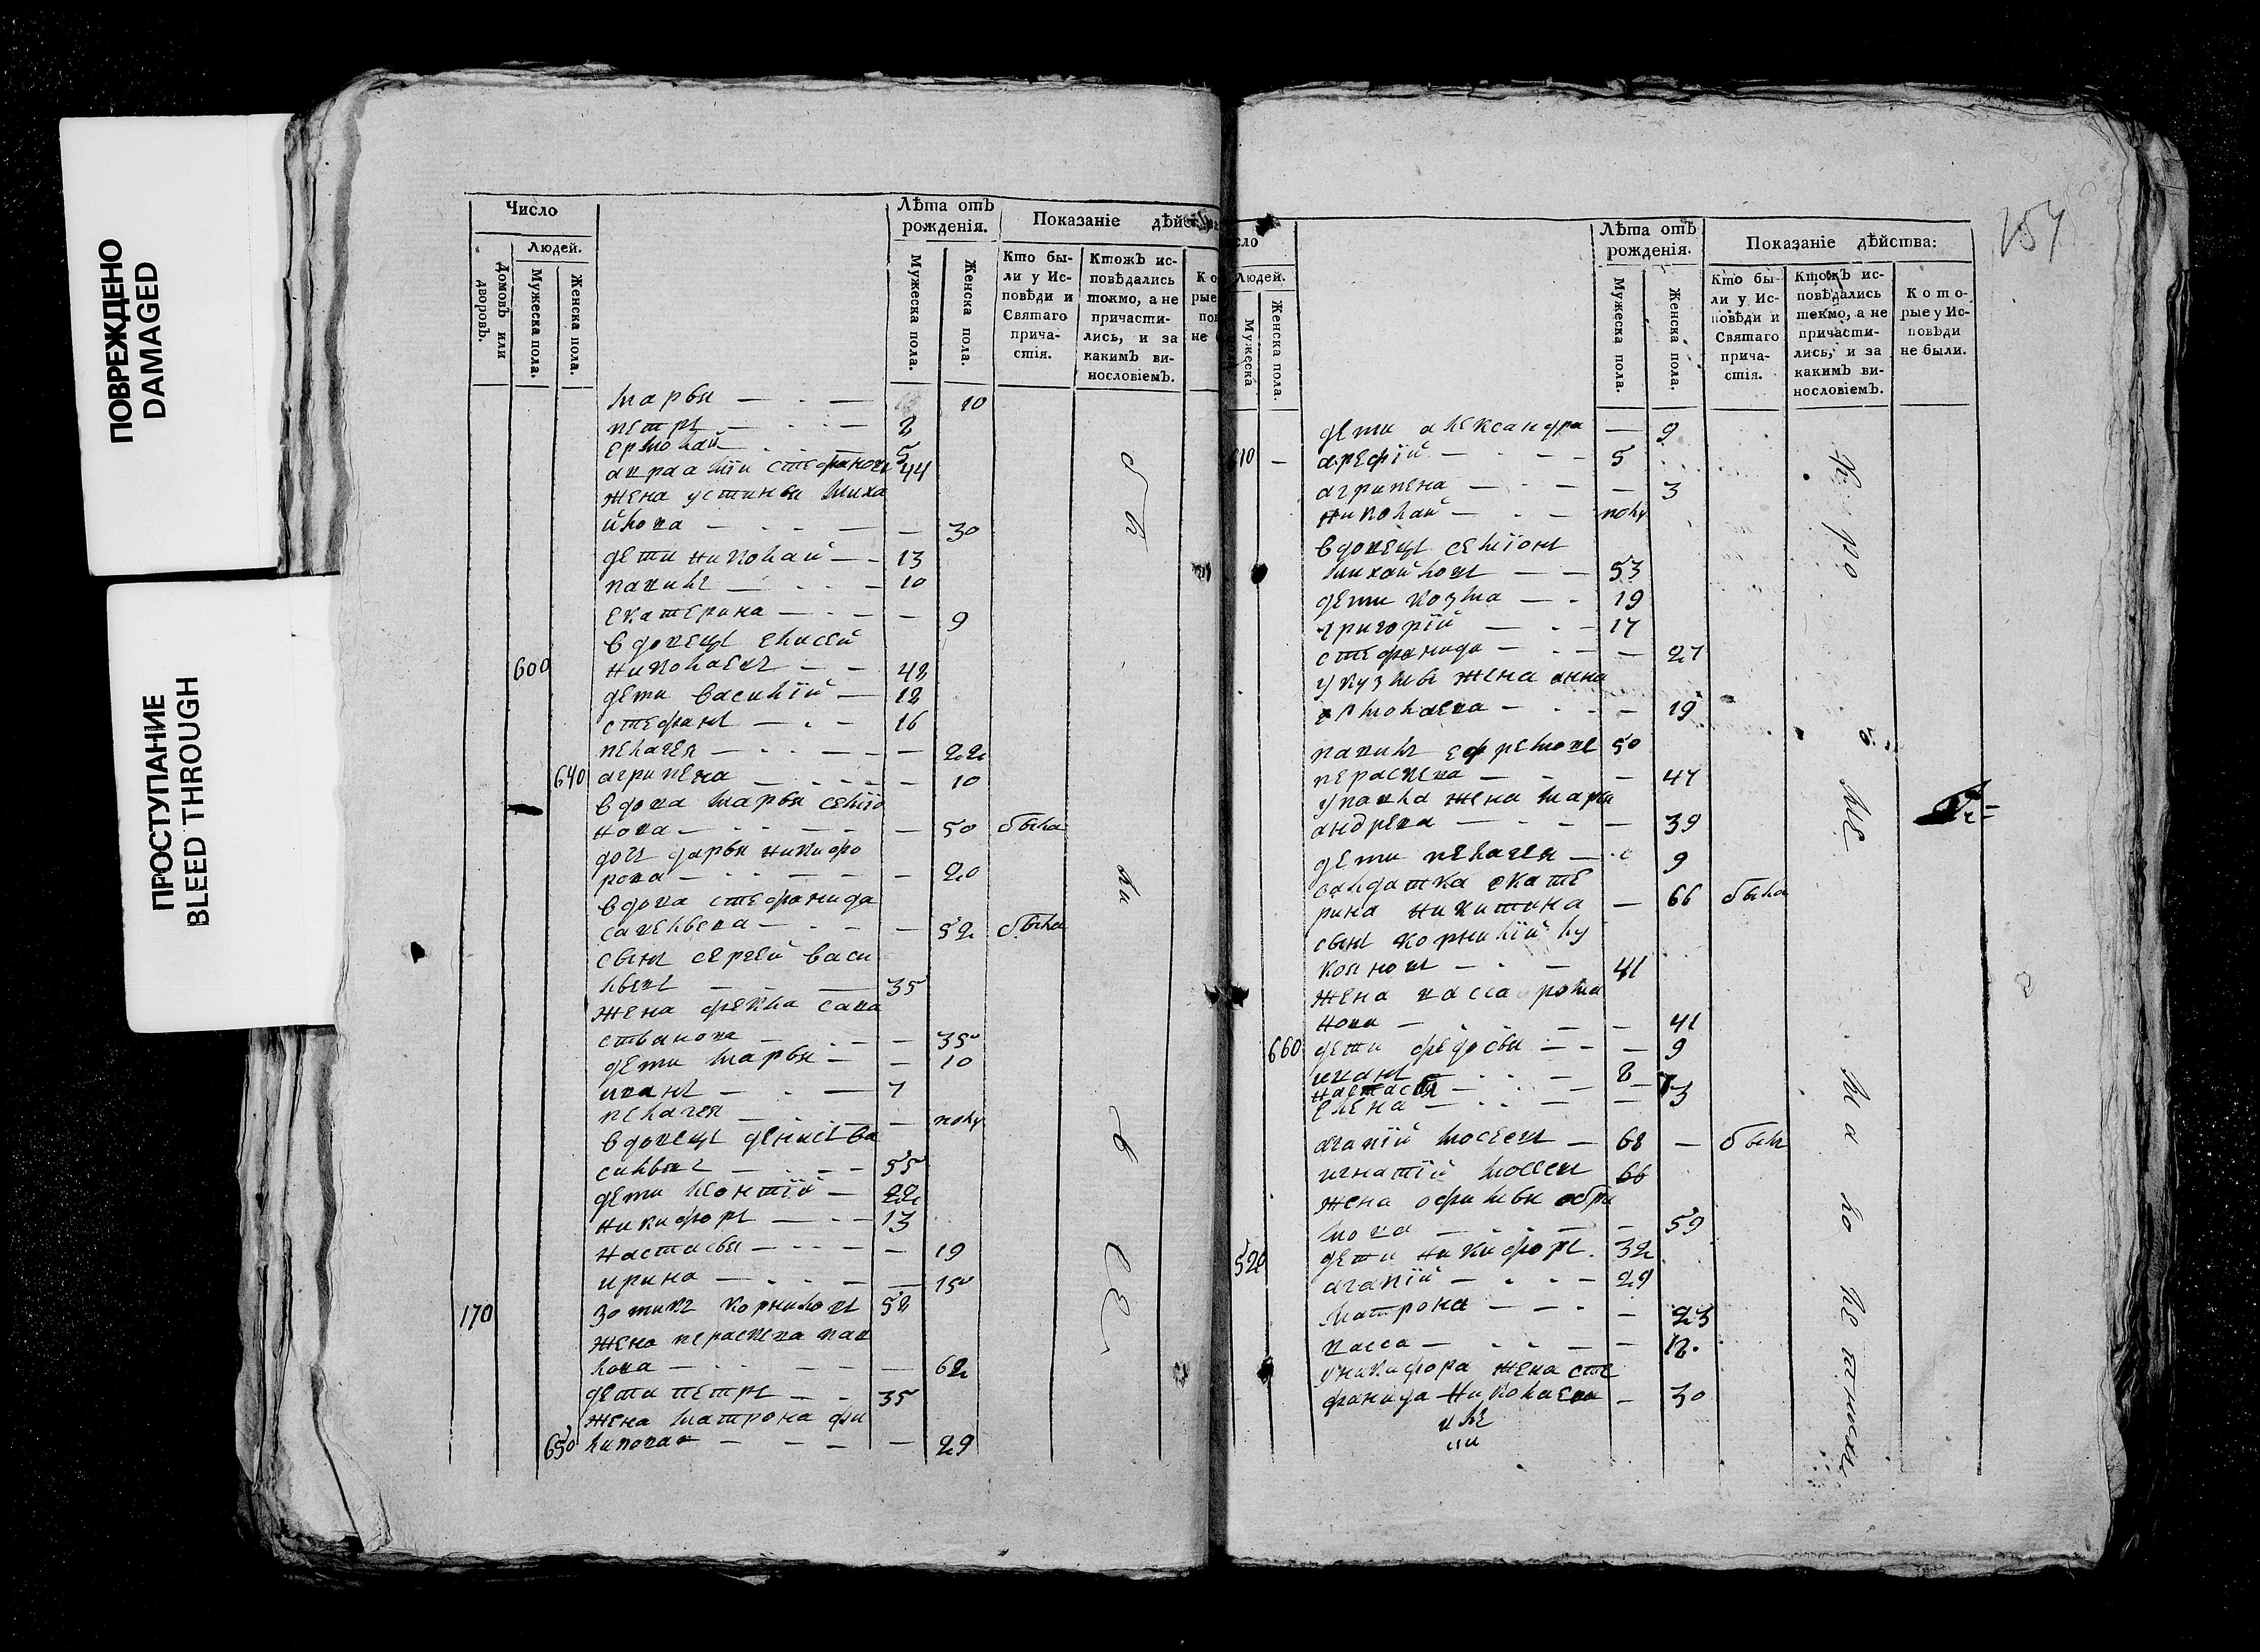 ПОВРЕЖДЕНО
DAMAGED
ПРОСТУПАНИЕ
BLEED THROUGH
Число
Людей.
Домовъ или дворовъ.
Мужеска пола.
Женска пола.
Лѣта отъ рожденія.
Мужеска пола.
Женска пола.
Показаніе дѣйст
Кто были у Исповѣди и Святаго причастія.
Ктожъ исповѣдались токмо, а не причастились, и за какимъ винословіемъ.
марѳя — 10
петръ — 2
ермолай — 5
авраамїи стефановъ 44
жена устинья миха
йлова — — 30
дети николай — 13
павилъ — 10
екатерина — — 9
вдовецъ елисей
600 николаевъ — 48
дети василїй — 18
стефанъ — 16
пелагея — — 22
640 агрипена — — 10
вдова марѳя семїо
нова — — 50 была
дочь дарья никифо
рова — — 20
вдова стефанида
савельева — — 52 была
сынъ сергей васи
льевъ — 35
жена фекла сава
стьанова — — 35
дети марѳя — — 10
иванъ — 7
пелагея — — полу
вдовецъ денисъ ва
сильевъ — 55
дети леонтїй — 22
никифоръ — 13
настасья — — 19
ирина — — 15
170 зотикъ корниловъ 58
жена пераскева пав
лова — — 62
дети петръ — 35
жена матрона фи
650 липова — — 29
154
сло
Людей.
Мужеска
Женска пола.
Лѣта отъ рожденія.
Мужеска пола.
Женска пола.
Показаніе дѣйства:
Кто были у Исповѣди и Святаго причастія.
Ктожъ исповѣдались токмо, а не причастились, и за какимъ винословіемъ.
Которые у Исповѣди не были.
дети александра — 9
610 — арефїй — 5
агрипена — — 3
николай — полу
вдовецъ семїонъ
михайловъ — 53
дети козма — 19
григорїй — 17
стефанида — — 27
у кузмы жена анна
ермолаева — — 19
павилъ ефремовъ 50
пераскева — — 47
у павла жена марѳя
андрева — — 39
дети пелагея — 9
салдатка екате
рина никитина — 66 была
сынъ корнилїй лу
кояновъ — 41
жена васса рома
нова — — 41
660 дети федосья — — 9
иванъ — 8
настасья — — 7
елена — — 3
агапїй мосеевъ — 68 — былъ
игнатїй мосеев 66
жена офимья обра
мова — — 59
520 дети никифоръ 32
агапїй — 29
матрона — — 23
васса — — 18
у никифора жена сте
фанида николаева — 30